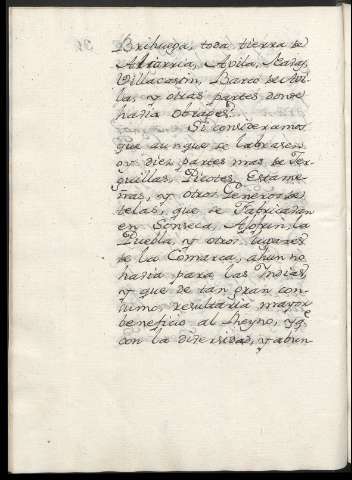 Brihuega, toda tierra de
Alcarria, Avila, Rasas,
Villacastin, Barco de Avi-
la, y otras partes donde
havia obrages.
Si consideramos
que aunque se labrasen
oy diez partes mas de Xer-
guillas, Picotes, Estame-
ñas, y otros Generos de
telas, que se Fabricaban
en Sonseca, Ajofrin, la
Puebla, y otros lugares
de la Comarca, ahun no
havia para las Indias,
y que de tan gran con-
sumo, resultaria mayor
beneficio al Rheyno, y q.e
con la diversidad, y abun-